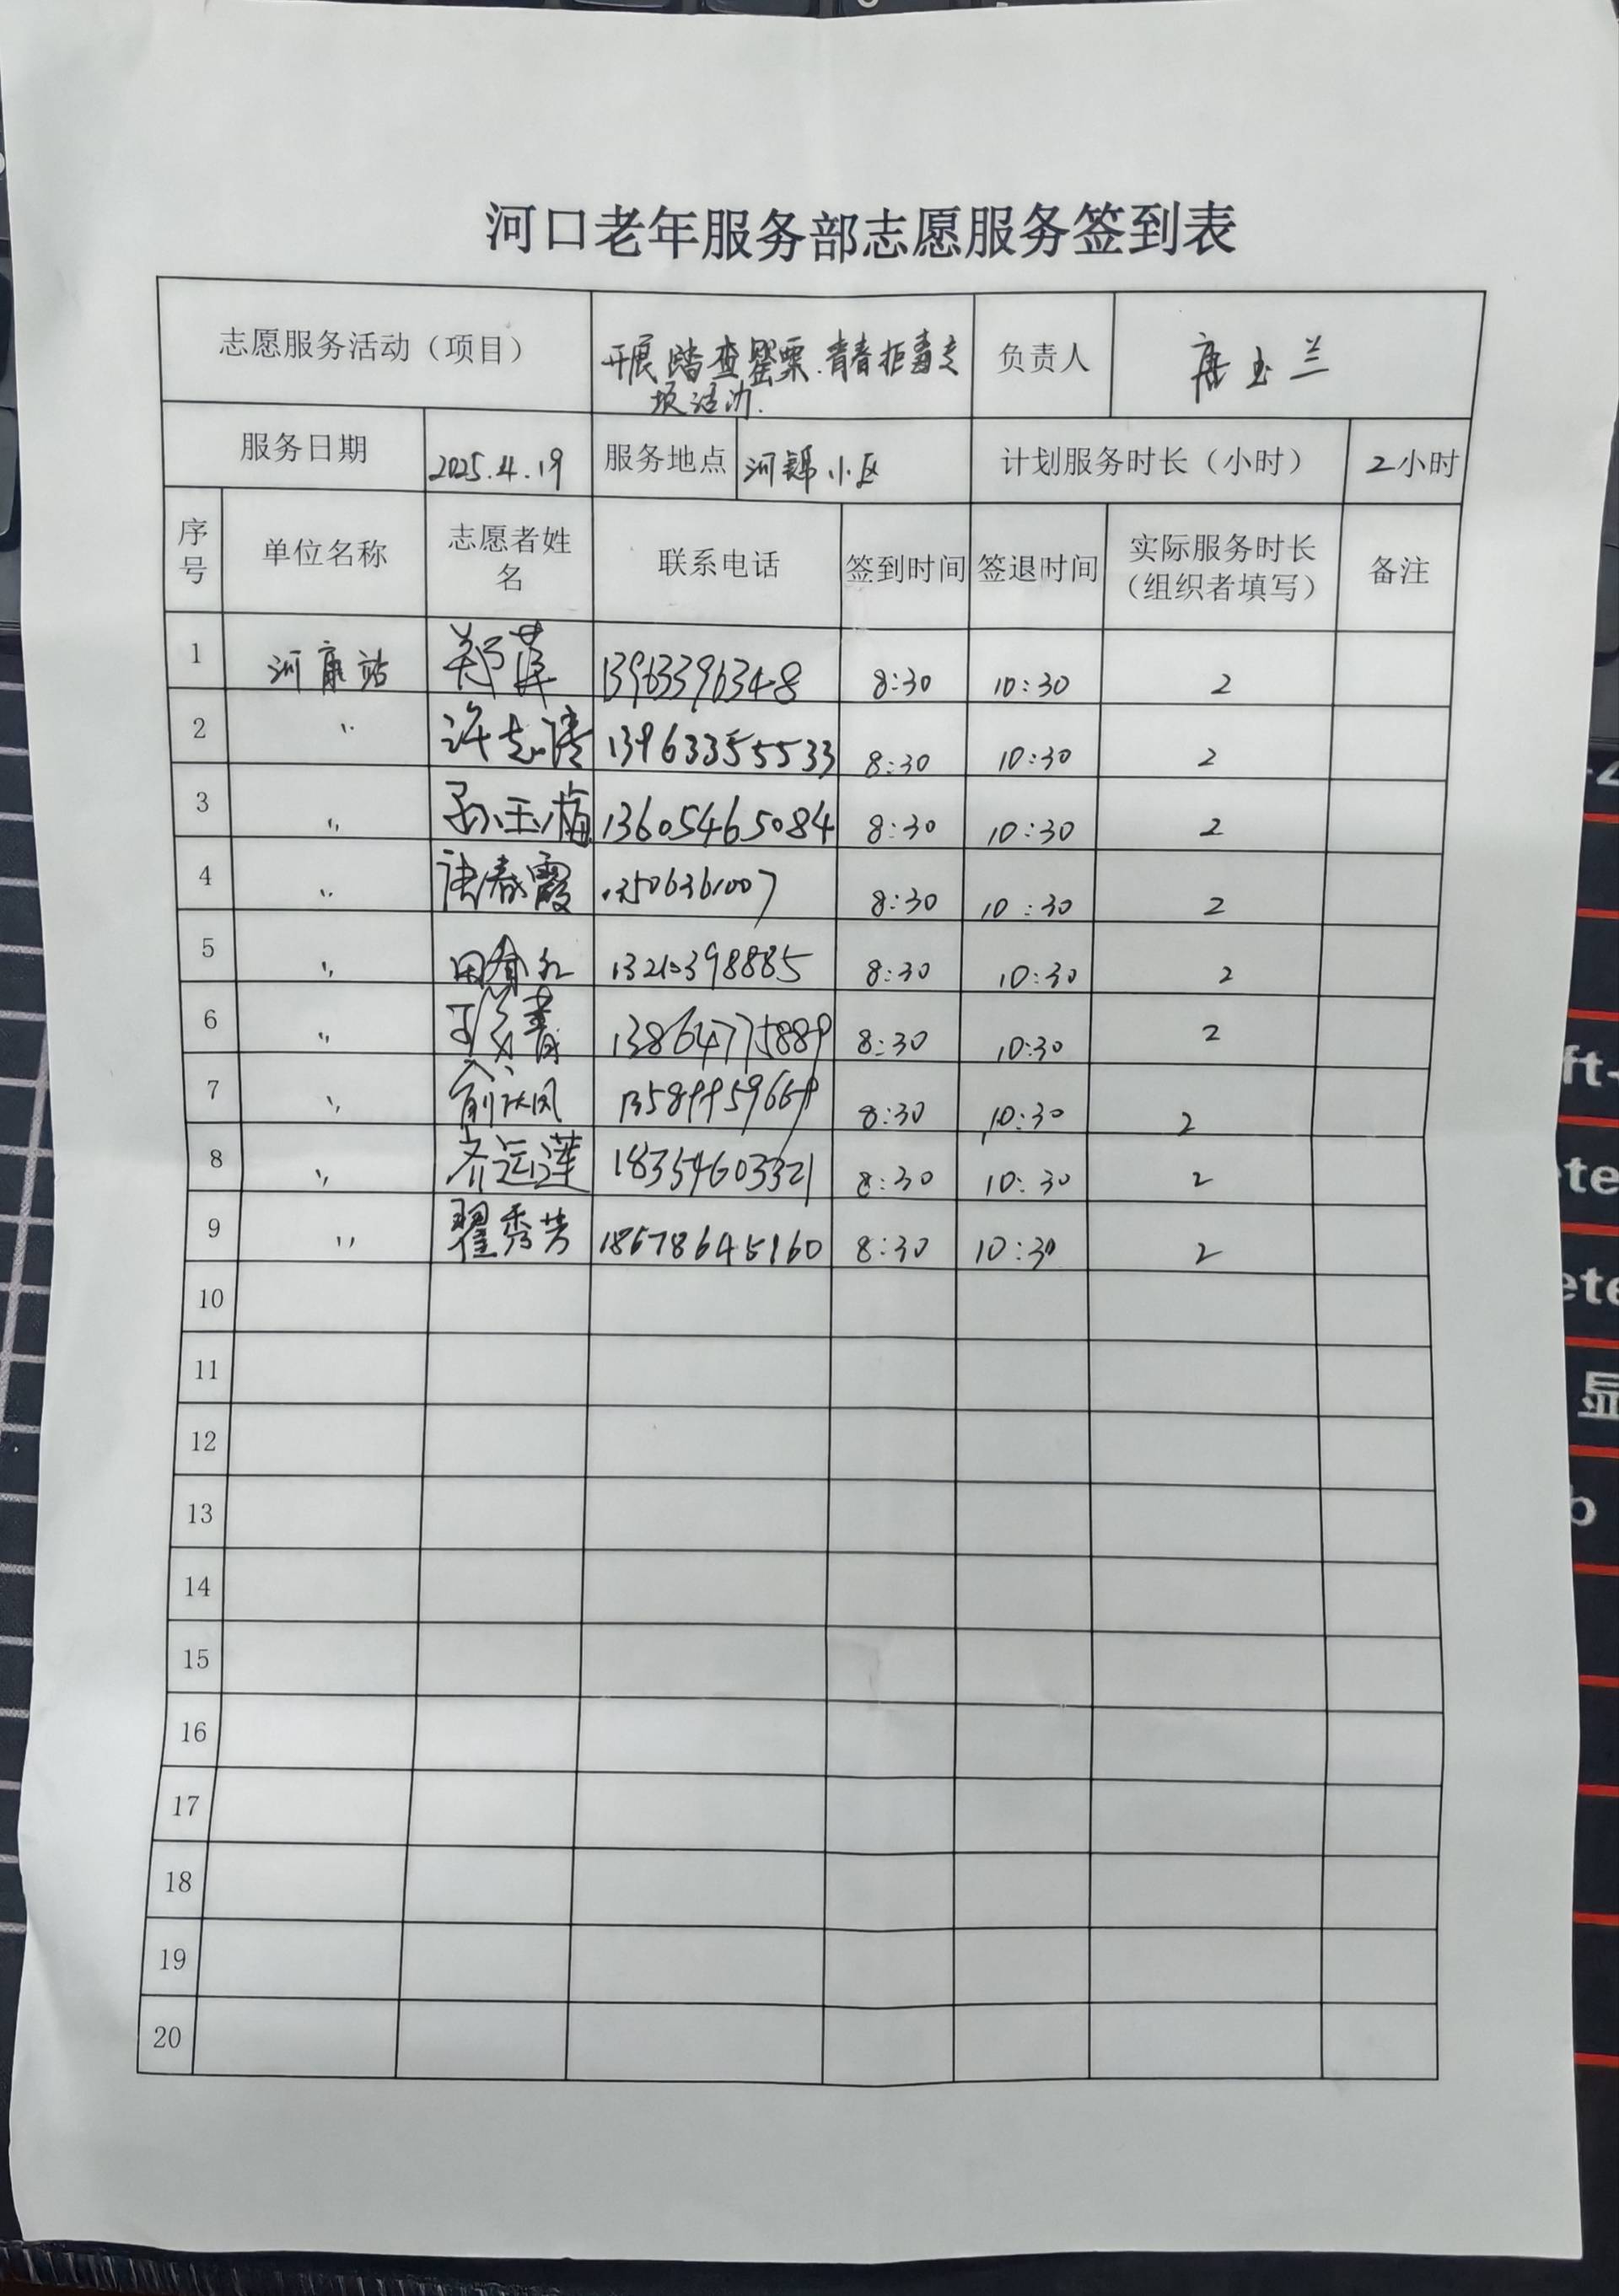 河口老年服务部志愿服务签到表
志愿服务活动（项目） 开展踏查罂粟.青春拒毒专 负责人 唐玉兰
项活动.
服务日期 2025.4.19 服务地点 河锦小区 计划服务时长（小时） 2小时
序号 单位名称 志愿者姓名 联系电话 签到时间 签退时间 实际服务时长（组织者填写） 备注
1 河康站 郑萍 13963396348 8:30 10:30 2
2 〃 许志清 13963355533 8:30 10:30 2
3 〃 孙玉梅 13605465084 8:30 10:30 2
4 〃 唐春霞 13506361007 8:30 10:30 2
5 〃 8:30 10:30 2
6 〃 13864775889 8:30 10:30 2
7 〃 8:30 10:30 2
8 〃 齐运莲 18354603321 8:30 10:30 2
9 〃 翟秀芳 18678645160 8:30 10:30 2
10
11
12
13
14
15
16
17
18
19
20
ft-
ete
显
b